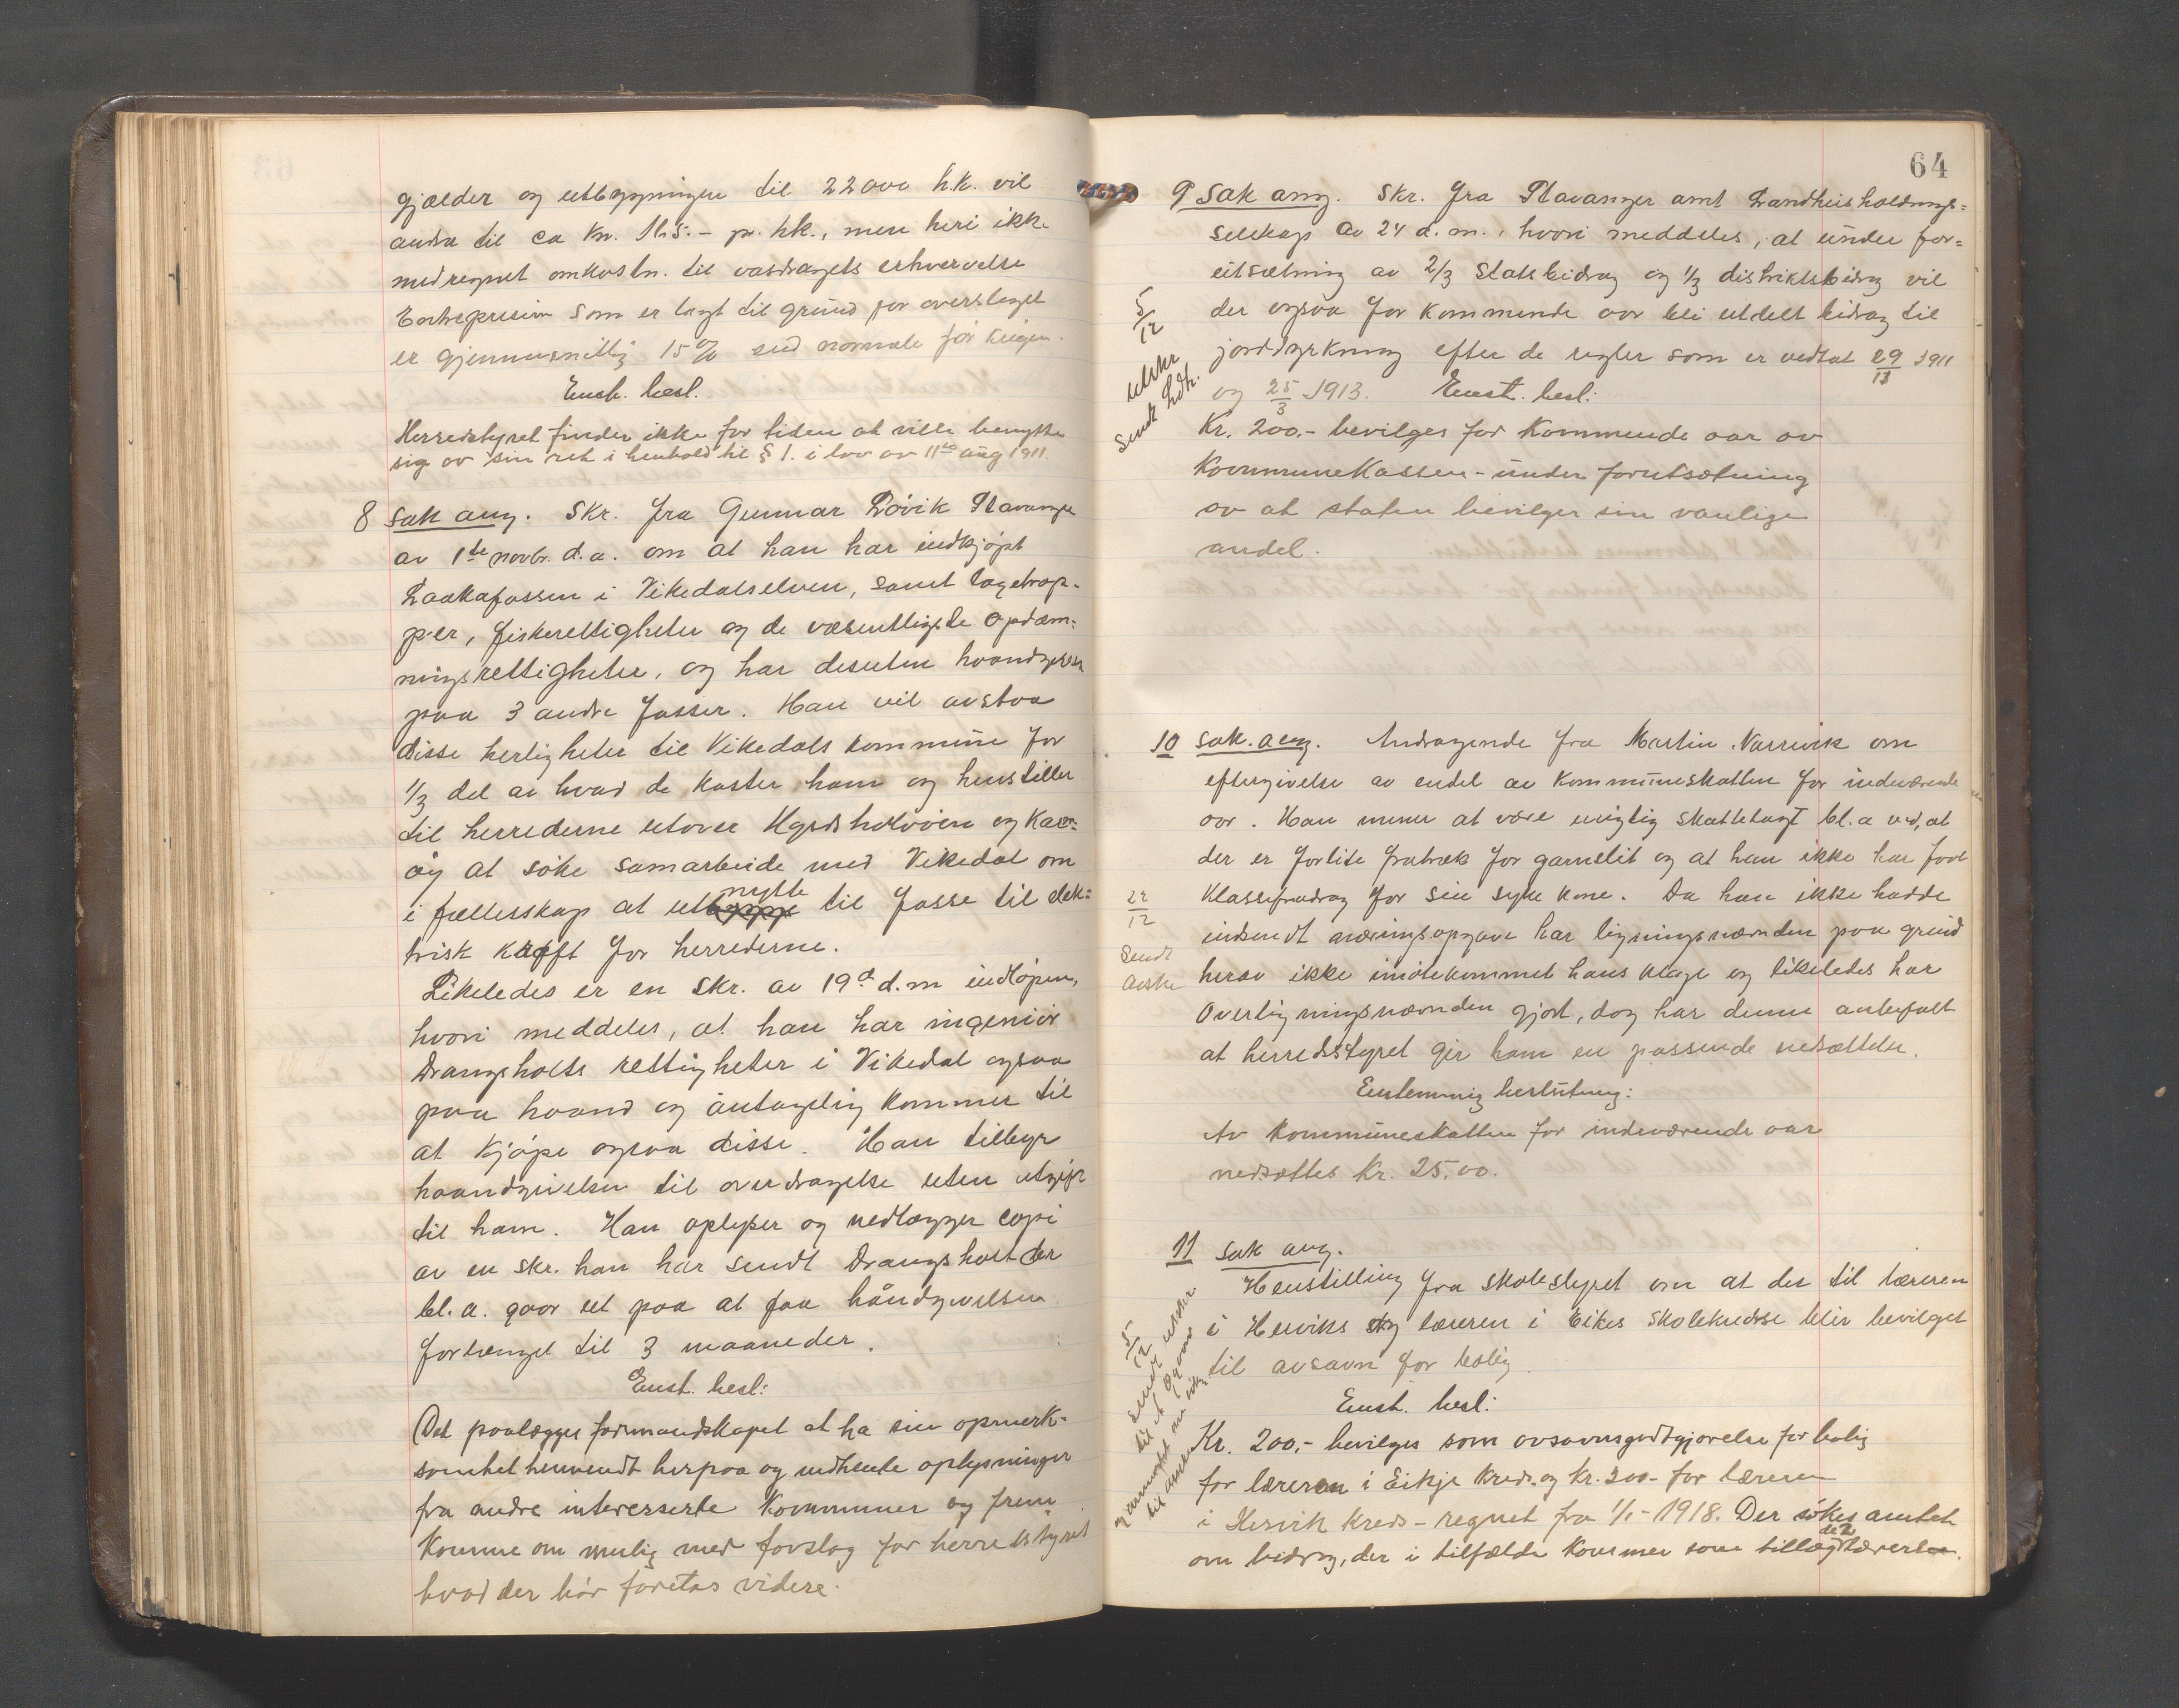 gjælder og utbygningen til 22000 h.k. vil
andra til ca kr. pr. hk., men heri ikke
medregnet omkostn. til vasdragets erhvervelse
som er lagt til grund for overslaget
er gjennemsnittlig 15% end normale før krigen.
Enst. besl.
Herredstyret finder ikke for tiden at ville benytte
sig av sin ret i henhold til § 1. i lov av 11te aug 1911.
8 Sak ang. Skr. fra Gunnar Løvik Stavanger
av 1ste novbr. d.a. om at han har indkjøpt
Laakafossen i Vikedalselven, samt laxetrap-
per, fiskerettigheter og de væsentligste opdæm-
ningsrettigheter, og har desuten haandgivelse
paa 3 andre fosser. Han vil avstaa
disse herligheter til Vikedals kommune for
1/3 del av hvad de koster ham og henstiller
til herrederne utover
at søke samarbeide med Vikedal om
i fællesskap at utnytte til fosse til elek-
trisk kraft for herrederne.
Likeledes er en skr. av 19d d.m indløpen,
hvori meddeles, at han har ingeniør
Drangsholts rettigheter i Vikedal ogsaa
paa haand og antagelig kommer til
at kjøpe ogsaa disse. Han tilbyr
haandgivelsen til overdragelse uten utgift
til ham. Han oplyser og vedlægger copi
av en skr. han har sendt Drangsholt der
bl.a. gaar ut paa at faa håndgivelsen
forlænget til 3 maaneder.
Enst. besl:
Det paalægges formandskapet at ha sin opmerk-
somhet henvendt herpaa og indhente oplysninger
fra andre interesserte kommuner og frem
komme om mulig med forslag for herredsstyret
hvad der bør foretas videre.
64
9 Sak ang. Skr. fra Stavanger amt Landhusholdnings-
selskap av 24 d.m., hvori meddeles, at under for-
utsætning av 2/3 Statsbidrag og 1/3 distriktsbidrag vil
der ogsaa for kommende aar bli utdelt bidrag til
jorddyrkning efter de regler som er vedtat 29/13 1911
og 25/3 1913. Enst. besl:
Kr. 200.- bevilges for kommende aar av
Kommunekassen - under forutsætning
av at staten bevilger sin vanlige
andel.
5/12
utskr
Sendt
10 Sak. ang. Andragende fra Martin Narrevik om
eftergivelse av endel av kommuneskatten for indeværende
aar. Han mener at være uriktig skattelagt bl.a ved, at
der er forlite fratræk for garnslit og at han ikke har faat
klassefradrag for sin syke kone. Da han ikke hadde
indsendt næringsopgave har ligningsnævnden paa grund
herav ikke imøtekommet hans klage og likeledes har
Overligningsnævnden gjort, dog har denne anbefalt
at herredsstyret gir ham en passende nedsættelse.
Enstemmig beslutning:
Av kommuneskatten for indeværende aar
nedsættes Kr. 25.00.
22/12
Sendt
11 Sak ang.
Henstilling fra skolestyret om at der til læreren
i Hervik og læreren i Eikes skolekredse blir bevilget
til avsavn for bolig.
Enst. besl:
Kr. 200,- bevilges som avsavnsgodtgjørelse for bolig
for læreren i Eikje kreds og kr. 200- for læreren
i Hervik kreds - regnet fra 1/1-1918. Der søkes amtet
om bidrag, der i tilfælde kommer som tillæg
5/12
sendt utskr.